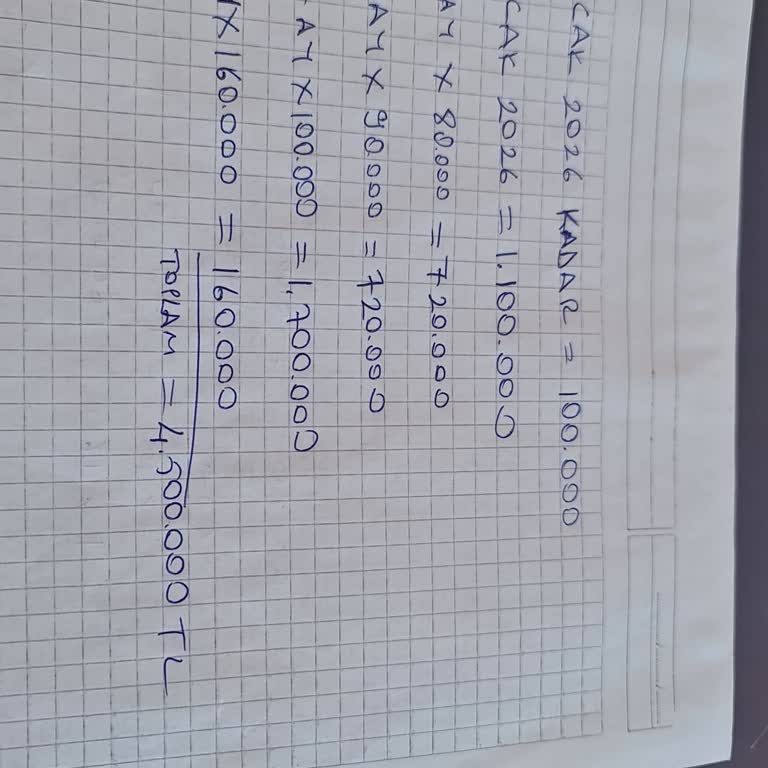 CAK 2026 KADAR = 100.000
CAK 2026 = 1.100.000
AY X 80.000 = 720.000
AY X 90.000 = 720.000
AY X 100.000 = 1,700.000
X 160.000 = 160.000
TOPLAM = 4.500.000 TL